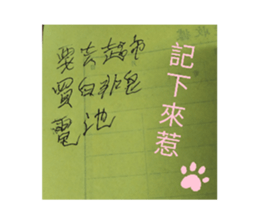 要去超市
買白非包
電池
記下來惹